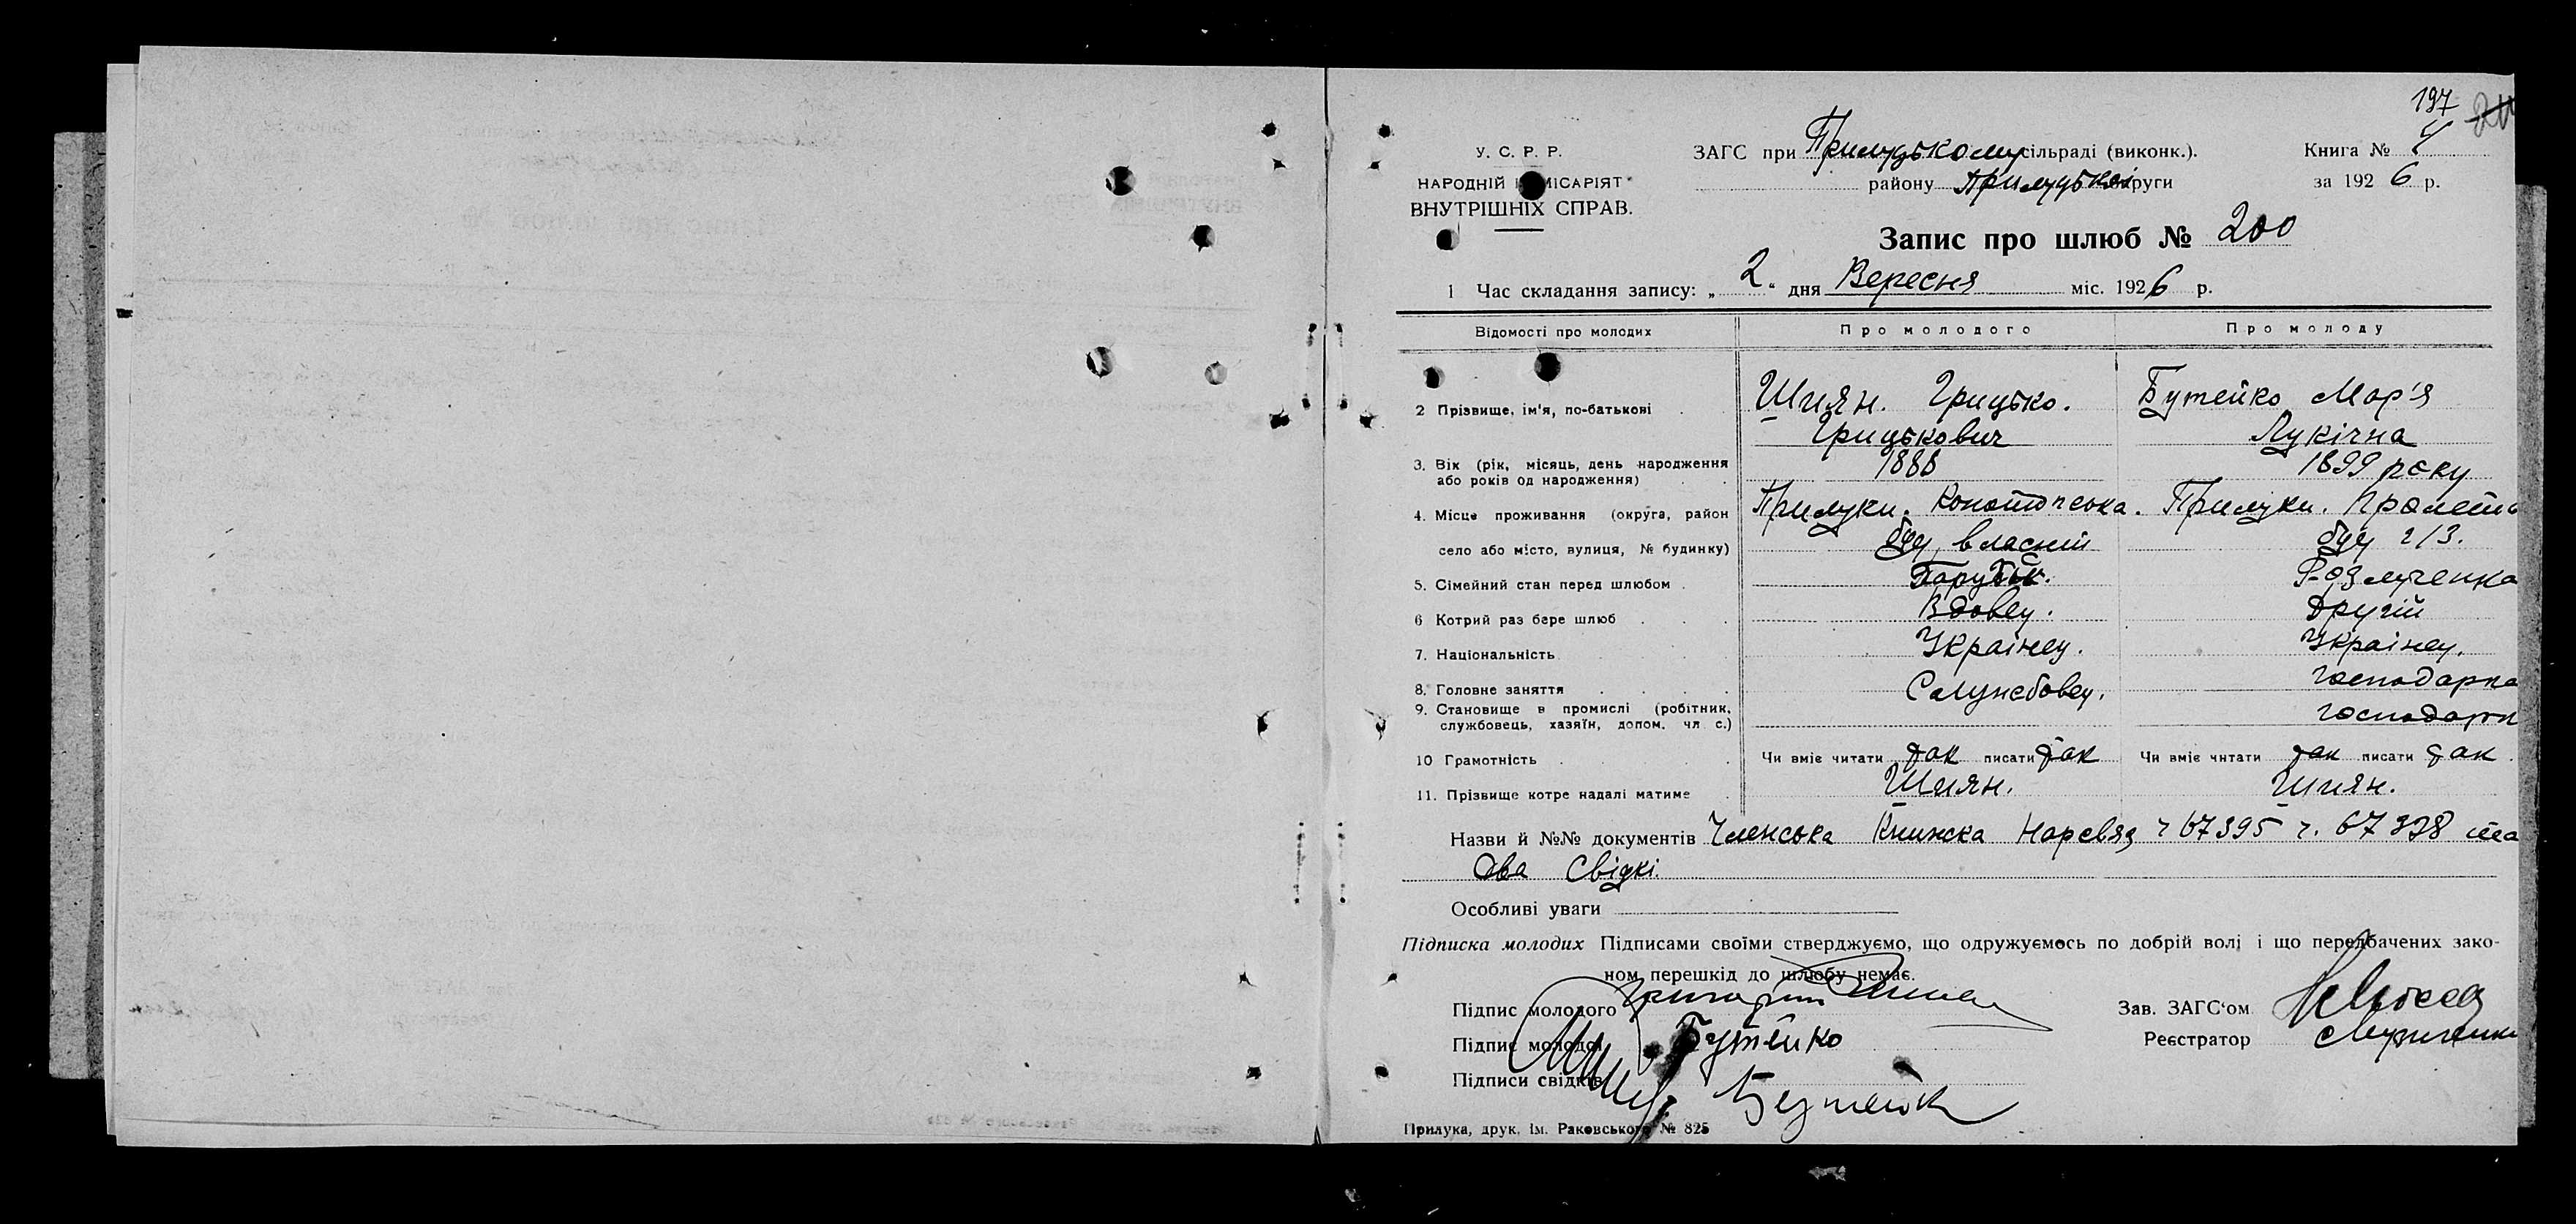 197
У. С. Р. Р. ЗАГС при Прилуцькому сільраді (виконк.). Книга № 4
НАРОДНІЙ КОМІСАРІЯТ району Прилуцької округи за 1926 р.
ВНУТРІШНІХ СПРАВ.
Запис про шлюб № 200
1 Час складання запису: „2“ дня Вересня міс. 1926 р.
Відомості про молодих Про молодого Про молоду
2 Прізвище, ім'я, по-батькові Шиян. Грицько. Бутейко Мар'я
Грицькович Лукічна
3. Вік (рік, місяць, день народження 1888 1899 року
або років од народження)
4. Місце проживання (округа, район Прилуки. Конотопська. Прилуки.
село або місто, вулиця, № будинку) буд, власний буд
5. Сімейний стан перед шлюбом Парубок. Розлученка
6 Котрий раз бере шлюб Вдовец. Другій
7. Національність Українец. Українец.
8. Головне заняття Службовец. Господарка
9. Становище в промислі (робітник, Господарк
службовець, хазяїн, допом. чл с.)
10 Грамотність Чи вміє читати так писати так Чи вміє читати так писати так
11. Прізвище котре надалі матиме Шиян. Шиян.
Назви й №№ документів Членська Книжка Нарсвяз ч 67395 ч. 67398 та
Два Свідкі.
Особливі уваги
Підписка молодих Підписами своїми стверджуємо, що одружуємось по добрій волі і що передбачених зако-
ном перешкід до шлюбу немає.
Підпис молодого Григорій Зав. ЗАГС'ом
Підпис молодої Бутейко Реєстратор
Підписи свідків Бутейк
Прилука, друк. ім. Раковського № 825